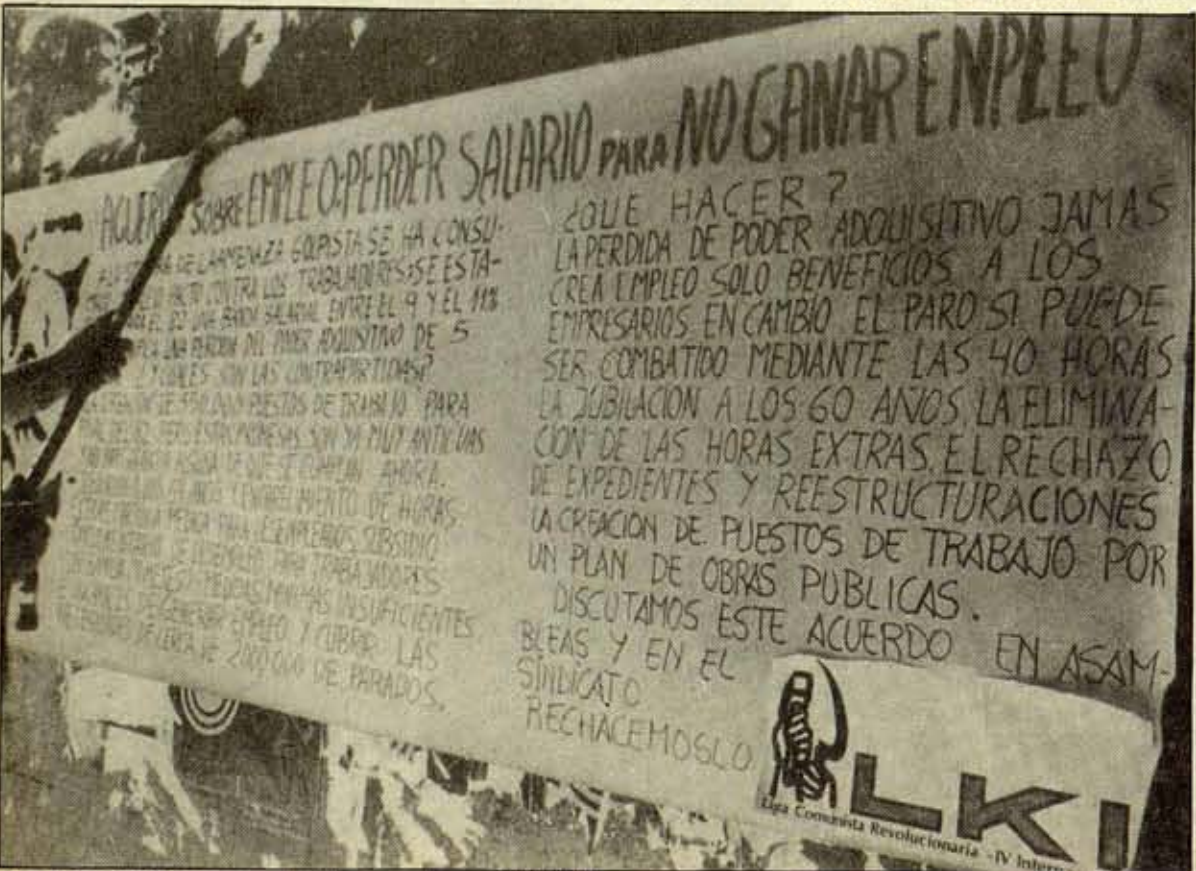 ACUERDO SOBRE EMPLEO: PERDER SALARIO PARA NO GANAR EMPLEO
DE LA AMENAZA GOLPISTA SE HA CONSU-
CONTRA LOS TRABAJADORES: SE ESTA-
EL 82 UNA BANDA SALARIAL ENTRE EL 9 Y EL 11%
UNA PERDIDA DEL PODER ADQUISITIVO DE 5
Y CUALES SON LAS CONTRAPARTIDAS?
DE 350.000 PUESTOS DE TRABAJO PARA
PERO ESTAS PROMESAS SON YA MUY ANTIGUAS
DE QUE SE CUMPLAN AHORA.
DE HORAS
MEDICA PARA DESEMPLEADOS, SUBSIDIO
DE DESEMPLEO PARA TRABAJADORES
MEDIDAS MINIMAS INSUFICIENTES
DE GENERAR EMPLEO Y CUBRIR LAS
DE CERCA DE 2.000.000 DE PARADOS.
¿QUE HACER?
LA PERDIDA DE PODER ADQUISITIVO JAMAS
CREA EMPLEO SOLO BENEFICIOS A LOS
EMPRESARIOS EN CAMBIO EL PARO SI PUEDE
SER COMBATIDO MEDIANTE LAS 40 HORAS
LA JUBILACION A LOS 60 AÑOS LA ELIMINA-
CION DE LAS HORAS EXTRAS EL RECHAZO
DE EXPEDIENTES Y REESTRUCTURACIONES
LA CREACION DE PUESTOS DE TRABAJO POR
UN PLAN DE OBRAS PUBLICAS.
DISCUTAMOS ESTE ACUERDO EN ASAM-
BLEAS Y EN EL
SINDICATO
RECHACEMOSLO
LKI
Liga Comunista Revolucionaria -IV Intern